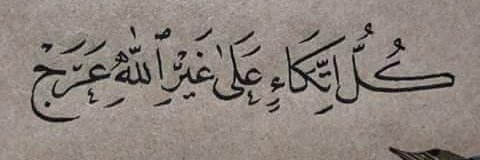 كُلُّ اتِّكَاءٍ عَلىٰ غَيْرِ ٱللّٰهِ عَرَجْ